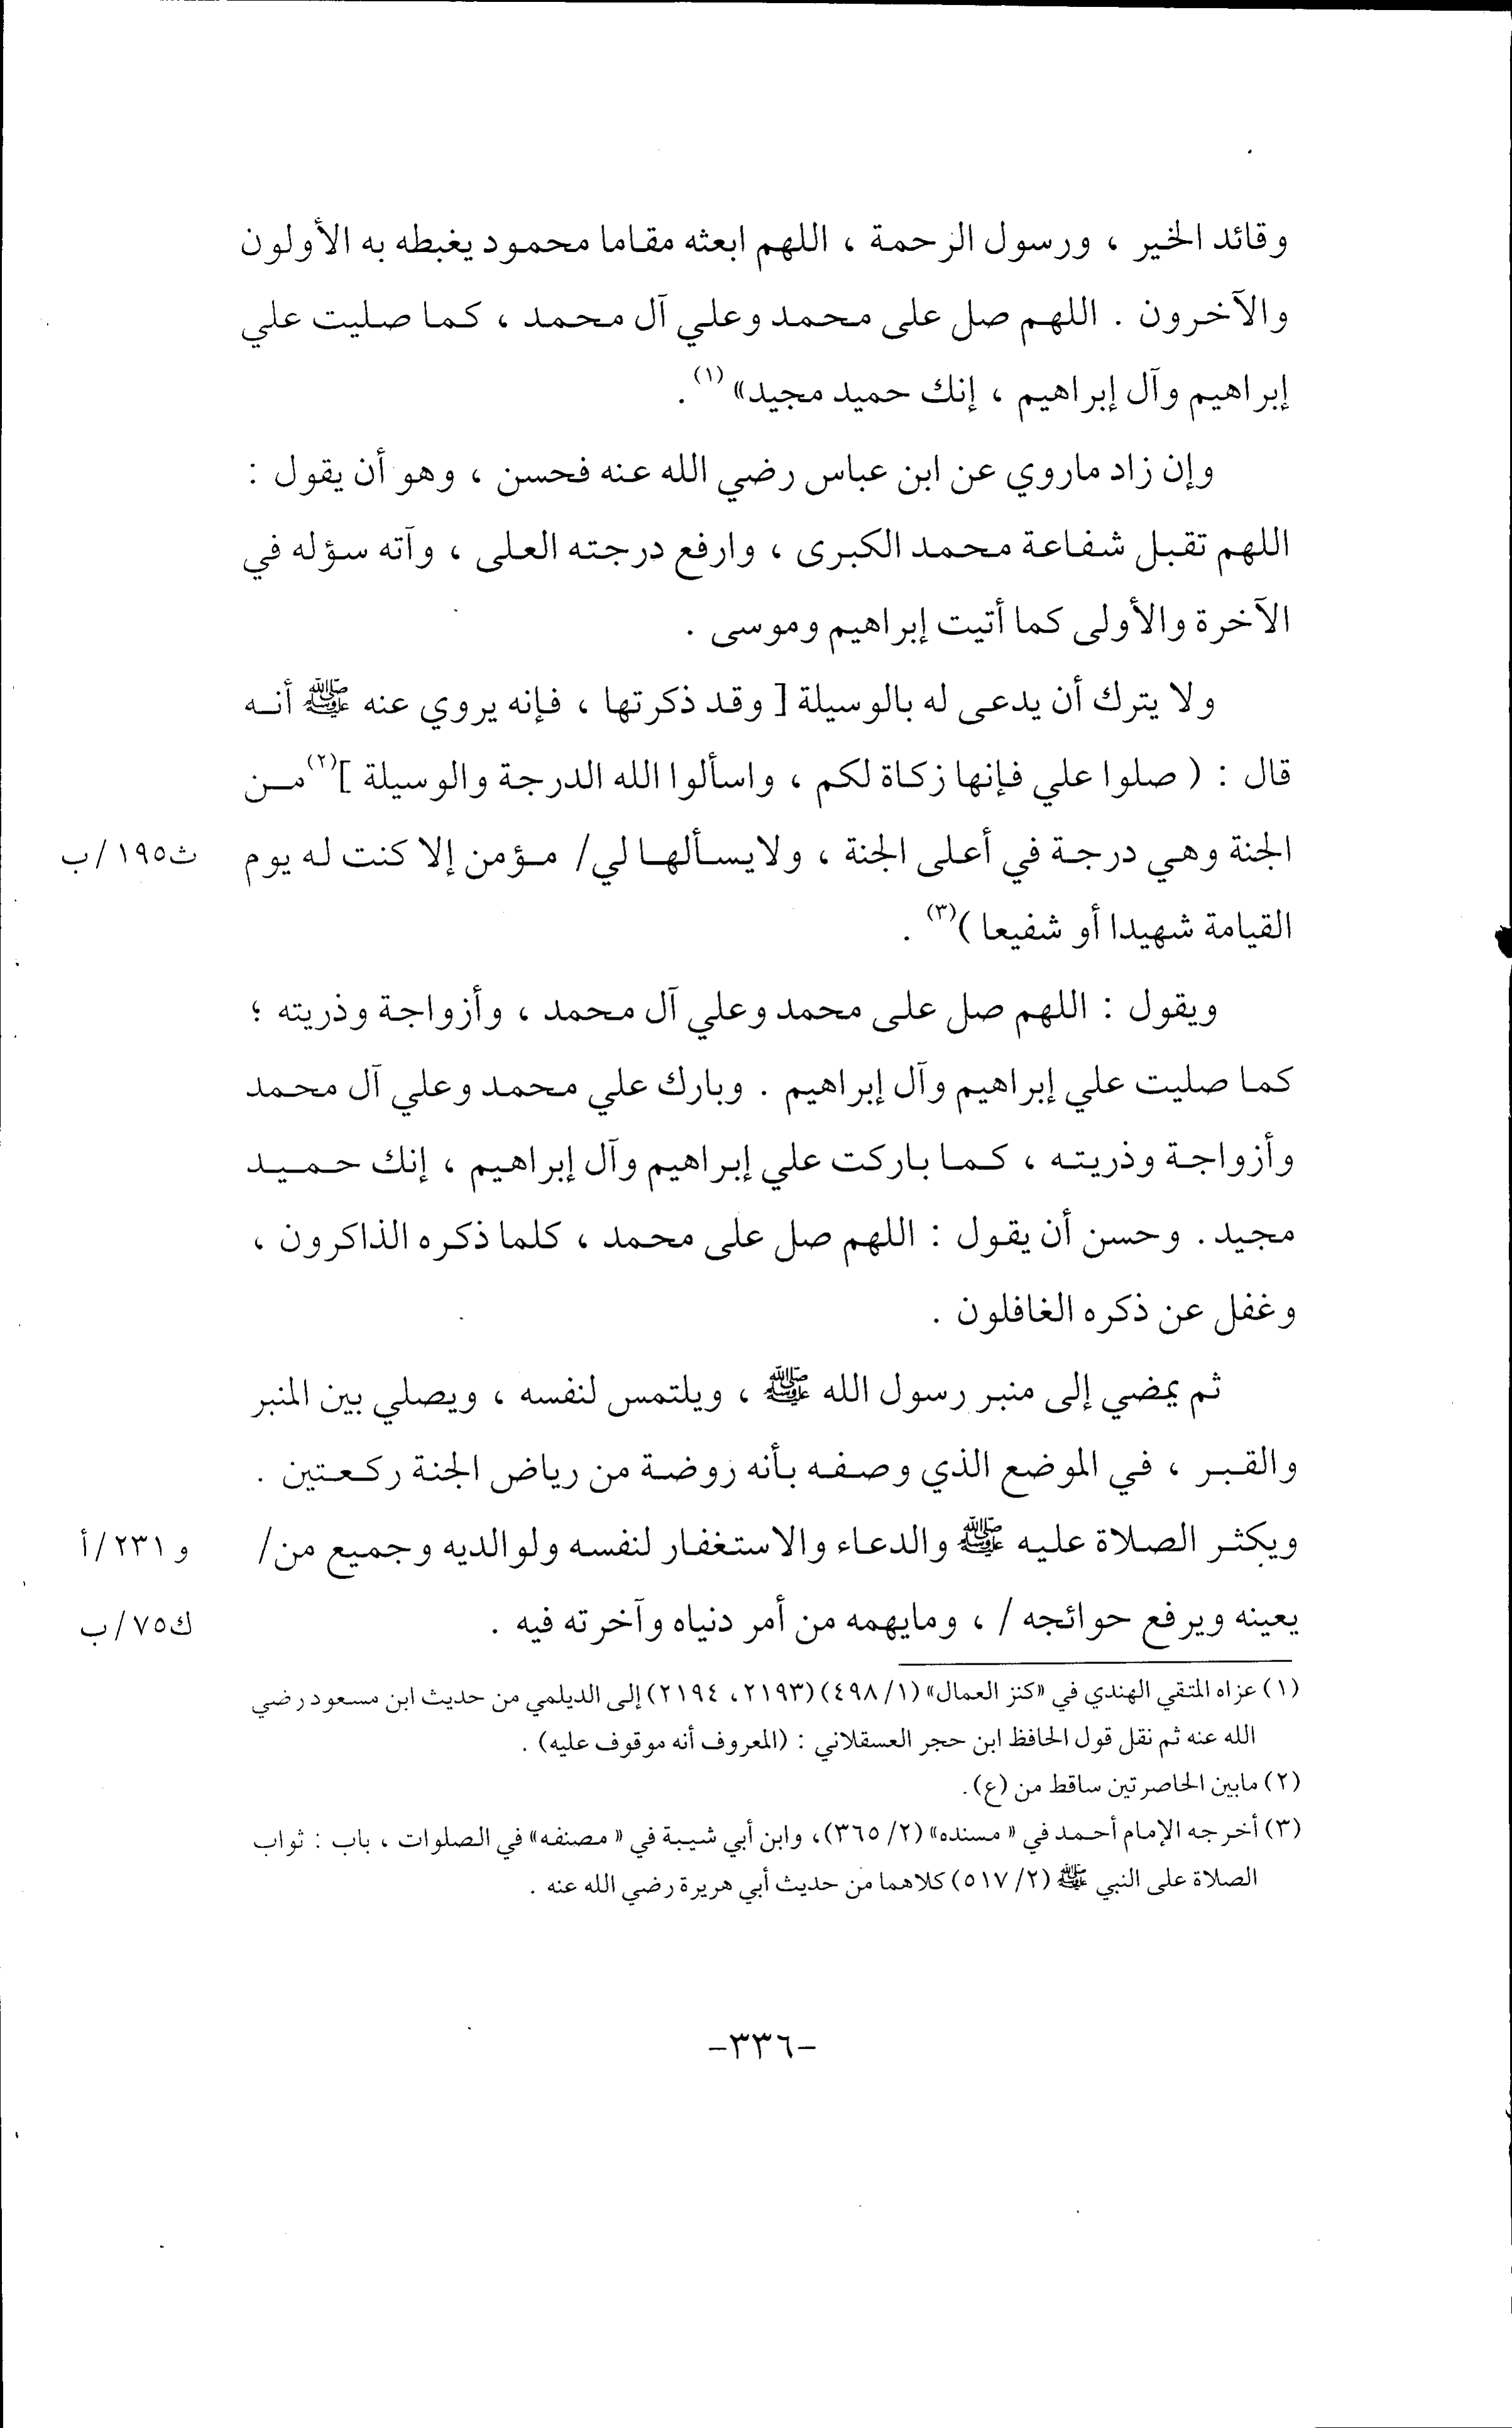 وقائد الخير ، ورسول الرحمة ، اللهم ابعثه مقاما محمود يغبطه به الأولون
والآخرون . اللهم صل على محمد وعلي آل محمد ، كما صليت علي
إبراهيم وآل إبراهيم ، إنك حميد مجيد» (١) .
وإن زاد ماروي عن ابن عباس رضي الله عنه فحسن ، وهو أن يقول :
اللهم تقبل شفاعة محمد الكبرى ، وارفع درجته العلى ، وآته سؤله في
الآخرة والأولى كما أتيت إبراهيم وموسى .
ولا يترك أن يدعى له بالوسيلة [ وقد ذكرتها ، فإنه يروي عنه ﷺ أنه
قال : ( صلوا علي فإنها زكاة لكم ، واسألوا الله الدرجة والوسيلة ](٢) من
الجنة وهي درجة في أعلى الجنة ، ولايسألها لي/ مؤمن إلا كنت له يوم ث١٩٥/ب
القيامة شهيدا أو شفيعا )(٣) .
ويقول : اللهم صل على محمد وعلي آل محمد ، وأزواجة وذريته ؛
كما صليت علي إبراهيم وآل إبراهيم . وبارك علي محمد وعلي آل محمد
وأزواجة وذريته ، كما باركت علي إبراهيم وآل إبراهيم ، إنك حميد
مجيد . وحسن أن يقول : اللهم صل على محمد ، كلما ذكره الذاكرون ،
وغفل عن ذكره الغافلون .
ثم يمضي إلى منبر رسول الله ﷺ ، ويلتمس لنفسه ، ويصلي بين المنبر
والقبر ، في الموضع الذي وصفه بأنه روضة من رياض الجنة ركعتين .
ويكثر الصلاة عليه ﷺ والدعاء والاستغفار لنفسه ولوالديه وجميع من/ و ٢٣١/أ
يعينه ويرفع حوائجه / ، ومايهمه من أمر دنياه وآخرته فيه . ك٧٥/ب
(١) عزاه المتقي الهندي في «كنز العمال» (١/ ٤٩٨) (٢١٩٣، ٢١٩٤) إلى الديلمي من حديث ابن مسعود رضي
الله عنه ثم نقل قول الحافظ ابن حجر العسقلاني : (المعروف أنه موقوف عليه) .
(٢) مابين الحاصرتين ساقط من (ع).
(٣) أخرجه الإمام أحمد في « مسنده» (٢/ ٣٦٥)، وابن أبي شيبة في « مصنفه» في الصلوات ، باب : ثواب
الصلاة على النبي ﷺ (٢/ ٥١٧) كلاهما من حديث أبي هريرة رضي الله عنه .
-٣٣٦-